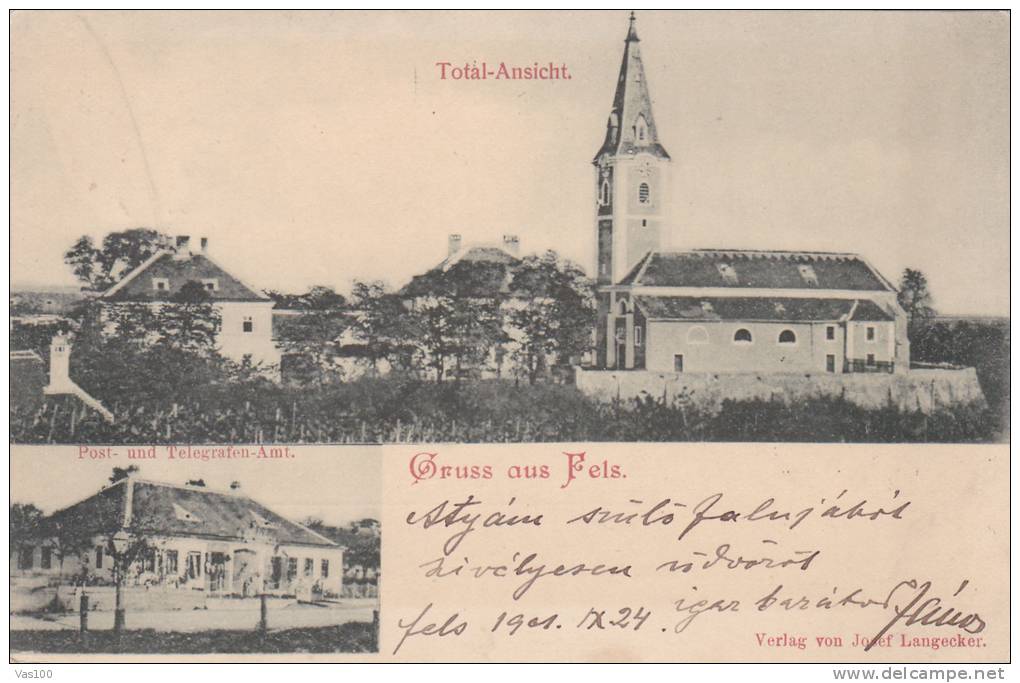 Totál-Ansicht.
Post- und Telegrafen-Amt.
Gruss aus Fels.
Atyám szülő falujából
szivélyesen üdvözöl
igaz barátod János
fels 1901. IX 24.
Verlag von Josef Langecker.
Vas100
www.delcampe.net